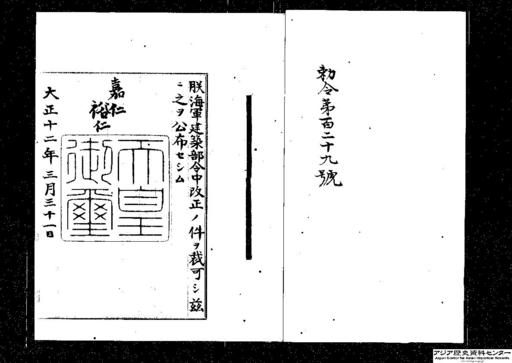 勅令第百二十九號
朕海軍建築部令中改正ノ件ヲ裁可シ茲
ニ之ヲ公布セシム
嘉仁
裕仁
天皇
御璽
大正十二年三月三十一日
アジア歴史資料センター
Japan Center for Asian Historical Records